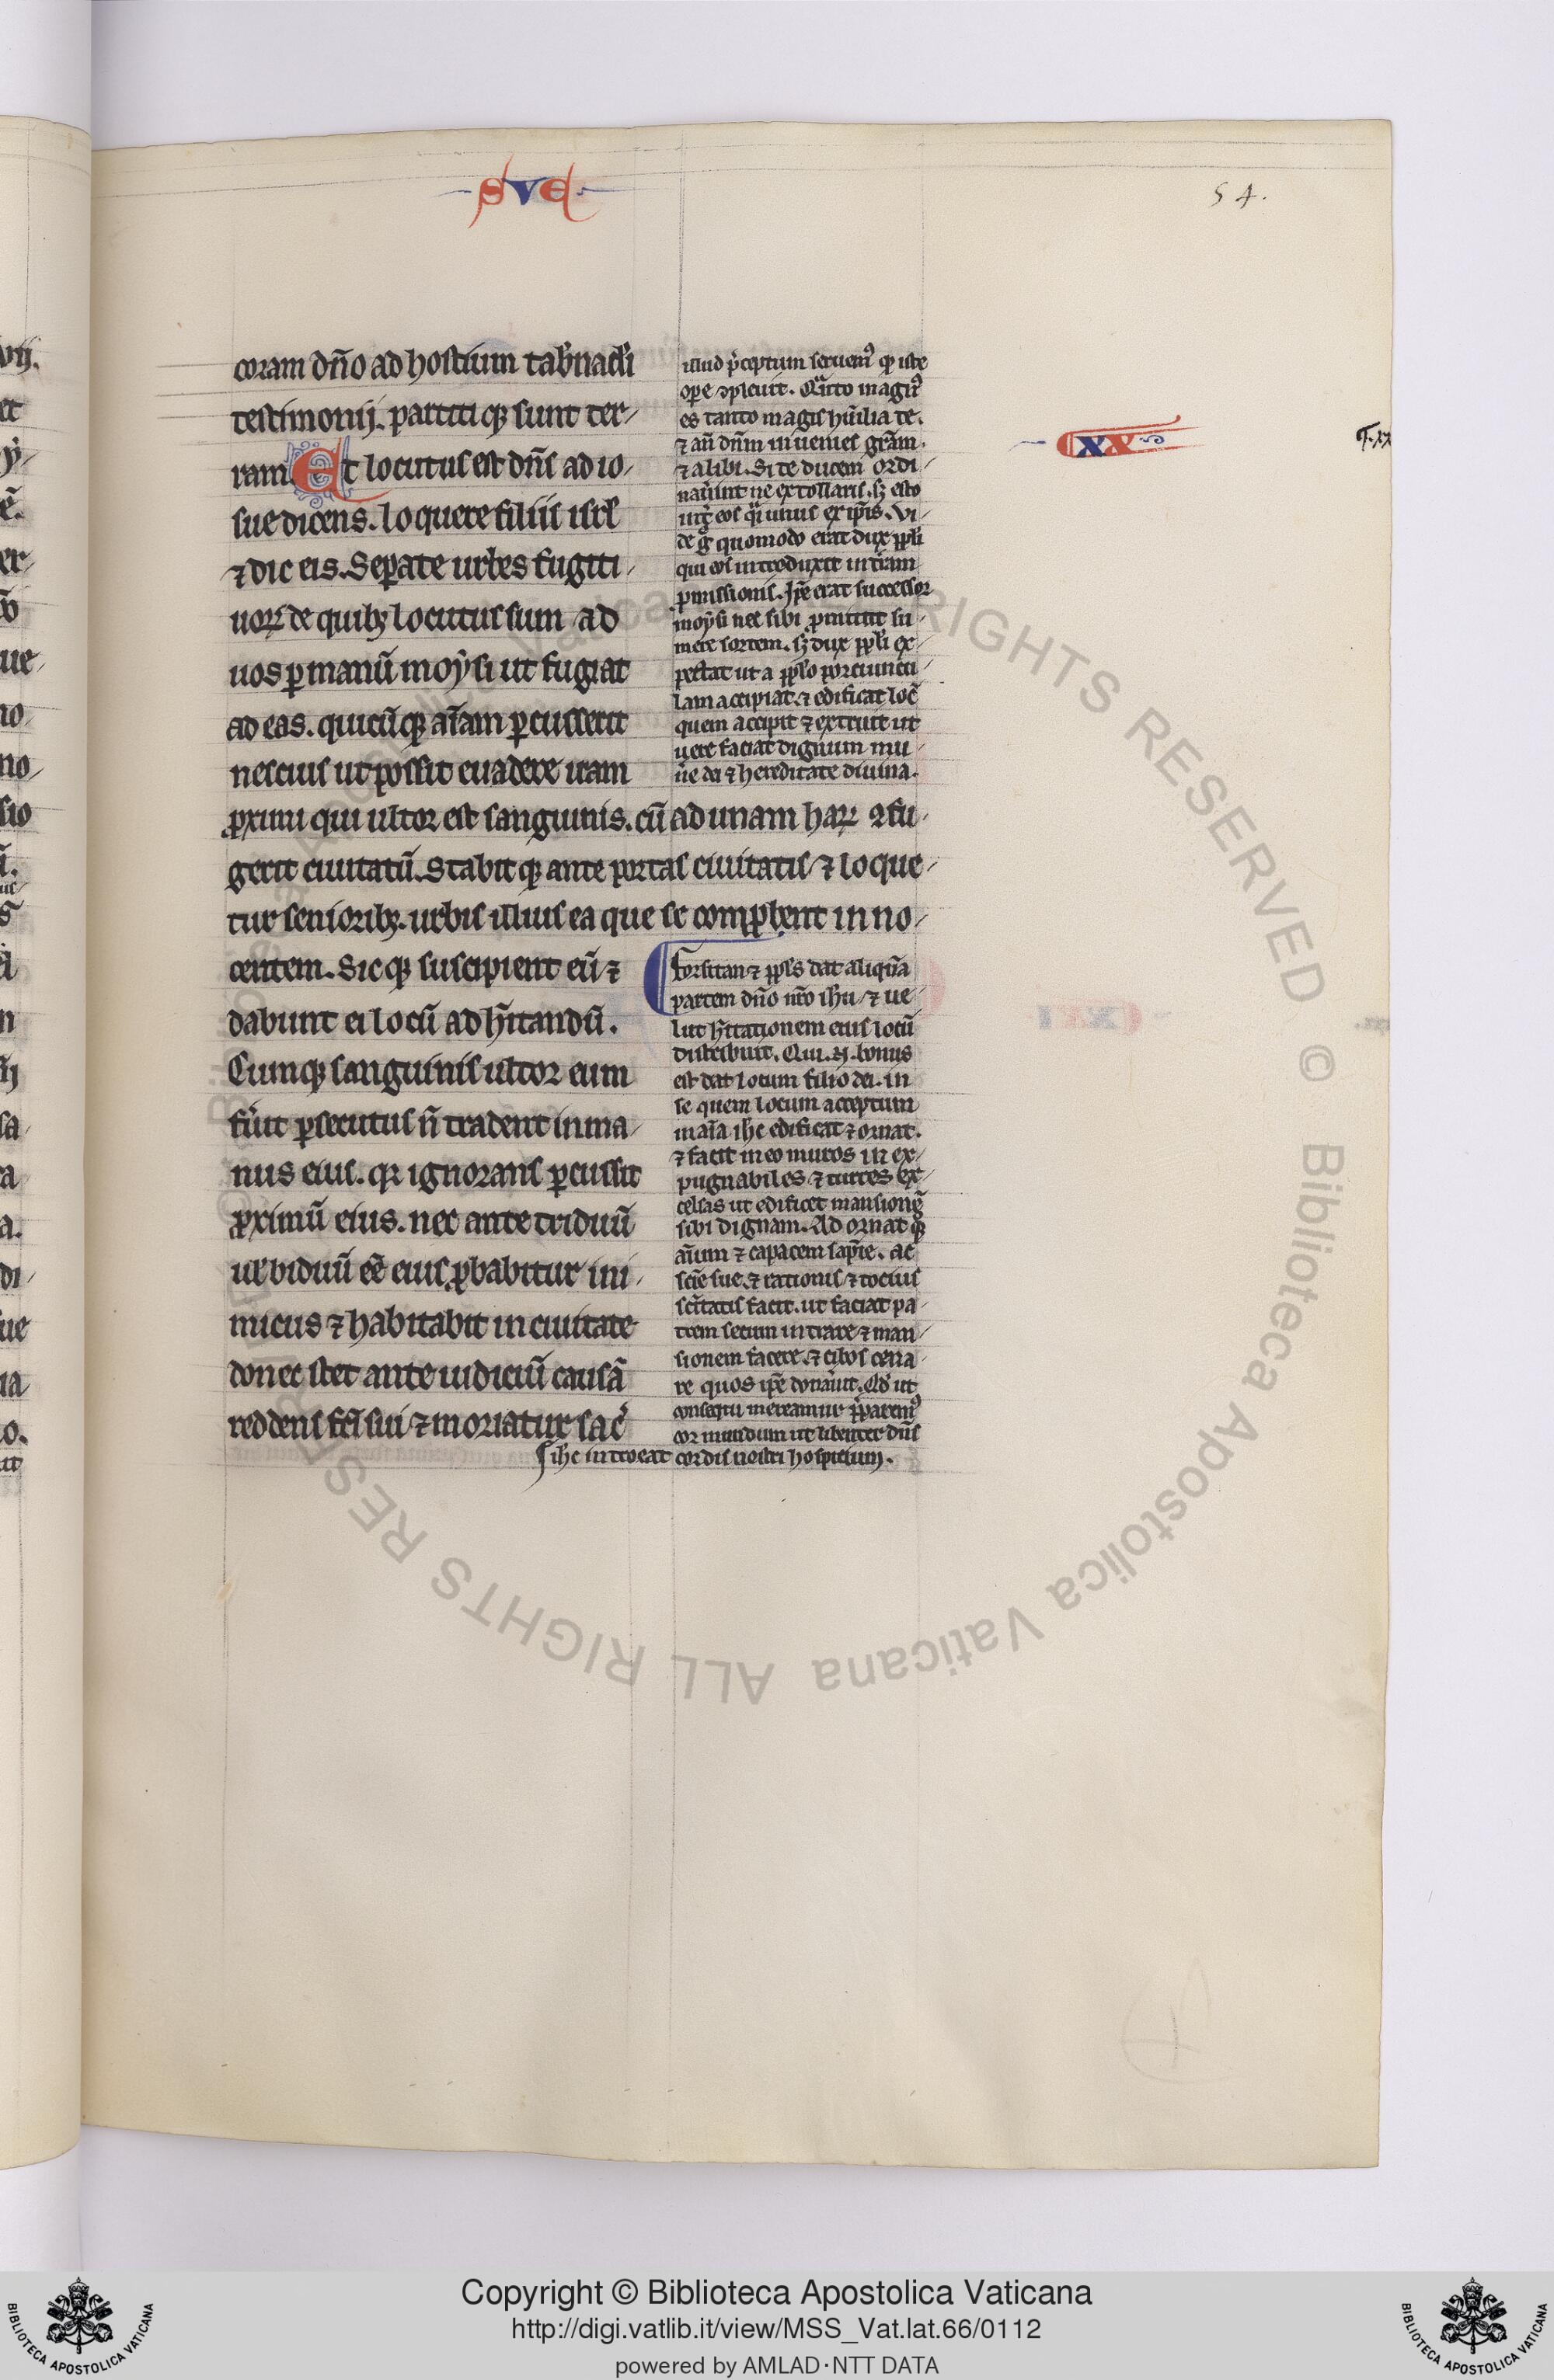 SVE
54.
coram dño ad hostium tab̕nacl̕i
testimonij. partiti q̨ sunt ter/
ram. Et locutus est dñs ad io/
sue dicens. loquere filiis isrl̕
⁊ dic eis. Sep̱arate urbes fugiti/
uoꝝ de quibꝫ locutus sum ad
uos ꝑ manū moẏsi ut fugiat
ad eas. quicūq̨ aīam ꝑcusserit
nescius ut possit euadere iram
ꝓximi qui ultor est sanguinis. cū ad unam haꝝ ɔfu/
gerit ciuitatū. Stabit q̨ ante portas ciuitatis ⁊ loque/
tur senioribꝫ. urbis illius ea que se comprobent inno/
centem. Sic q̨ suscipient eū ⁊
dabunt ei locū ad h̄itandū.
Cumq̨ sanguinis ultor eum
fūit ꝑsecutus ñ tradent in ma/
nus eius. qꝛ ignorans ꝑcussit
ꝓximū eius. nec ante triduū
ul̕ biduū eē̄ eius ꝓbabitur ini/
micus ⁊ habitabit in ciuitate
donec stet ante iudiciū causā
reddens fc̄i sui ⁊ moriatur sac̕
illud p̄ceptum seruem᾽ qp̄ iste
ope ɔpleuit. Qūto magn᾽
es tanto magis hūilia te.
⁊ añ dñm inuenies grām.
⁊ alibi. Si te ducem ordi/
nauint ne extollaris. sꝫ esto
int̕ eos q̄si unus ex ip̄is. Vi/
de g̊ quomodo erat dux ppl̕i
qui eos introduxit in t̕ram
ꝓmissionis. Ip̄e erat successor
moẏsi nec sibi ꝓmittit su/
mere sortem. sꝫ dux ppl̕i ex/
pectat ut a ppl̕o porciuncu/
lam accipiat. ⁊ edificat locū
quem accipit ⁊ extruit ut
uere faciat dignum mu/
ñe dei ⁊ hereditate diuina.
Forsitan ⁊ ppl̕s dat aliquā
partem dño nr̄o ihu ⁊ ue/
lut h̄itationem eius locū
distribuit. Qui .n̄. bonus
est dat locum filio dei. in
se quem locum acceptum
in aīa ihc edificat ⁊ ornat.
⁊ facit in eo muros in ex/
pugnabiles ⁊ turres ex/
celsas ut edificet mansionē
sibi dignam. Ad ornat q̨
aīum ⁊ capacem sap̄ie. ac
scīe sue. ⁊ rationis ⁊ tocius
sc̄itatis facit. ut faciat pa/
trem secum intrare ⁊ man/
sionem facere. ⁊ cibos cena/
re quos ip̄e donauit. Qd̕ ut
consequi mereamur p̄parem᾽
cor mundum ut libenter dñs
ihc introeat cordis nostri hospitium.
XX
Copyright © Biblioteca Apostolica Vaticana
http://digi.vatlib.it/view/MSS_Vat.lat.66/0112
powered by AMLAD·NTT DATA
BIBLIOTECA APOSTOLICA VATICANA
BIBLIOTECA APOSTOLICA VATICANA